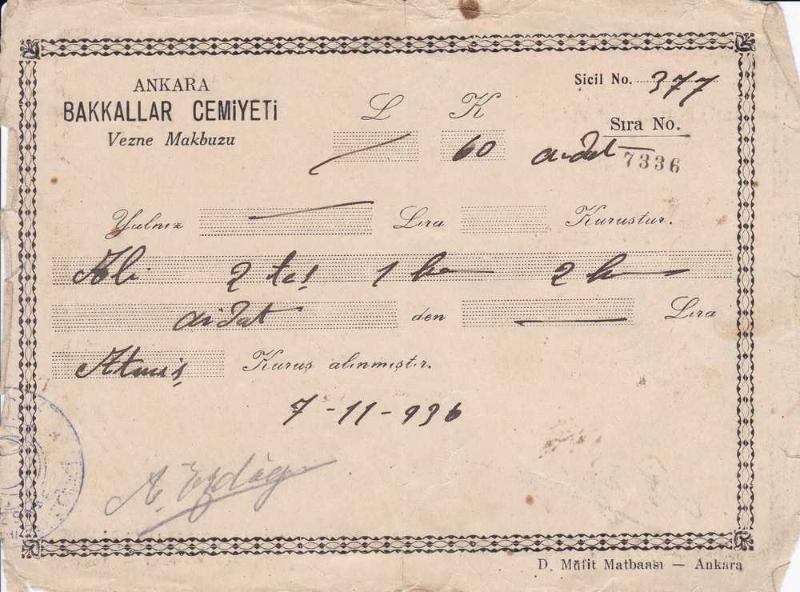 ANKARA
BAKKALLAR CEMİYETİ
Vezne Makbuzu
Sicil No. 377
L K
Sıra No.
60 aidat 7336
Yalnız Lira Kuruştur.
Ali 2 1 2
aidat den Lira
Atmış Kuruş alınmıştır.
7-11-936
D. Müfit Matbaası — Ankara